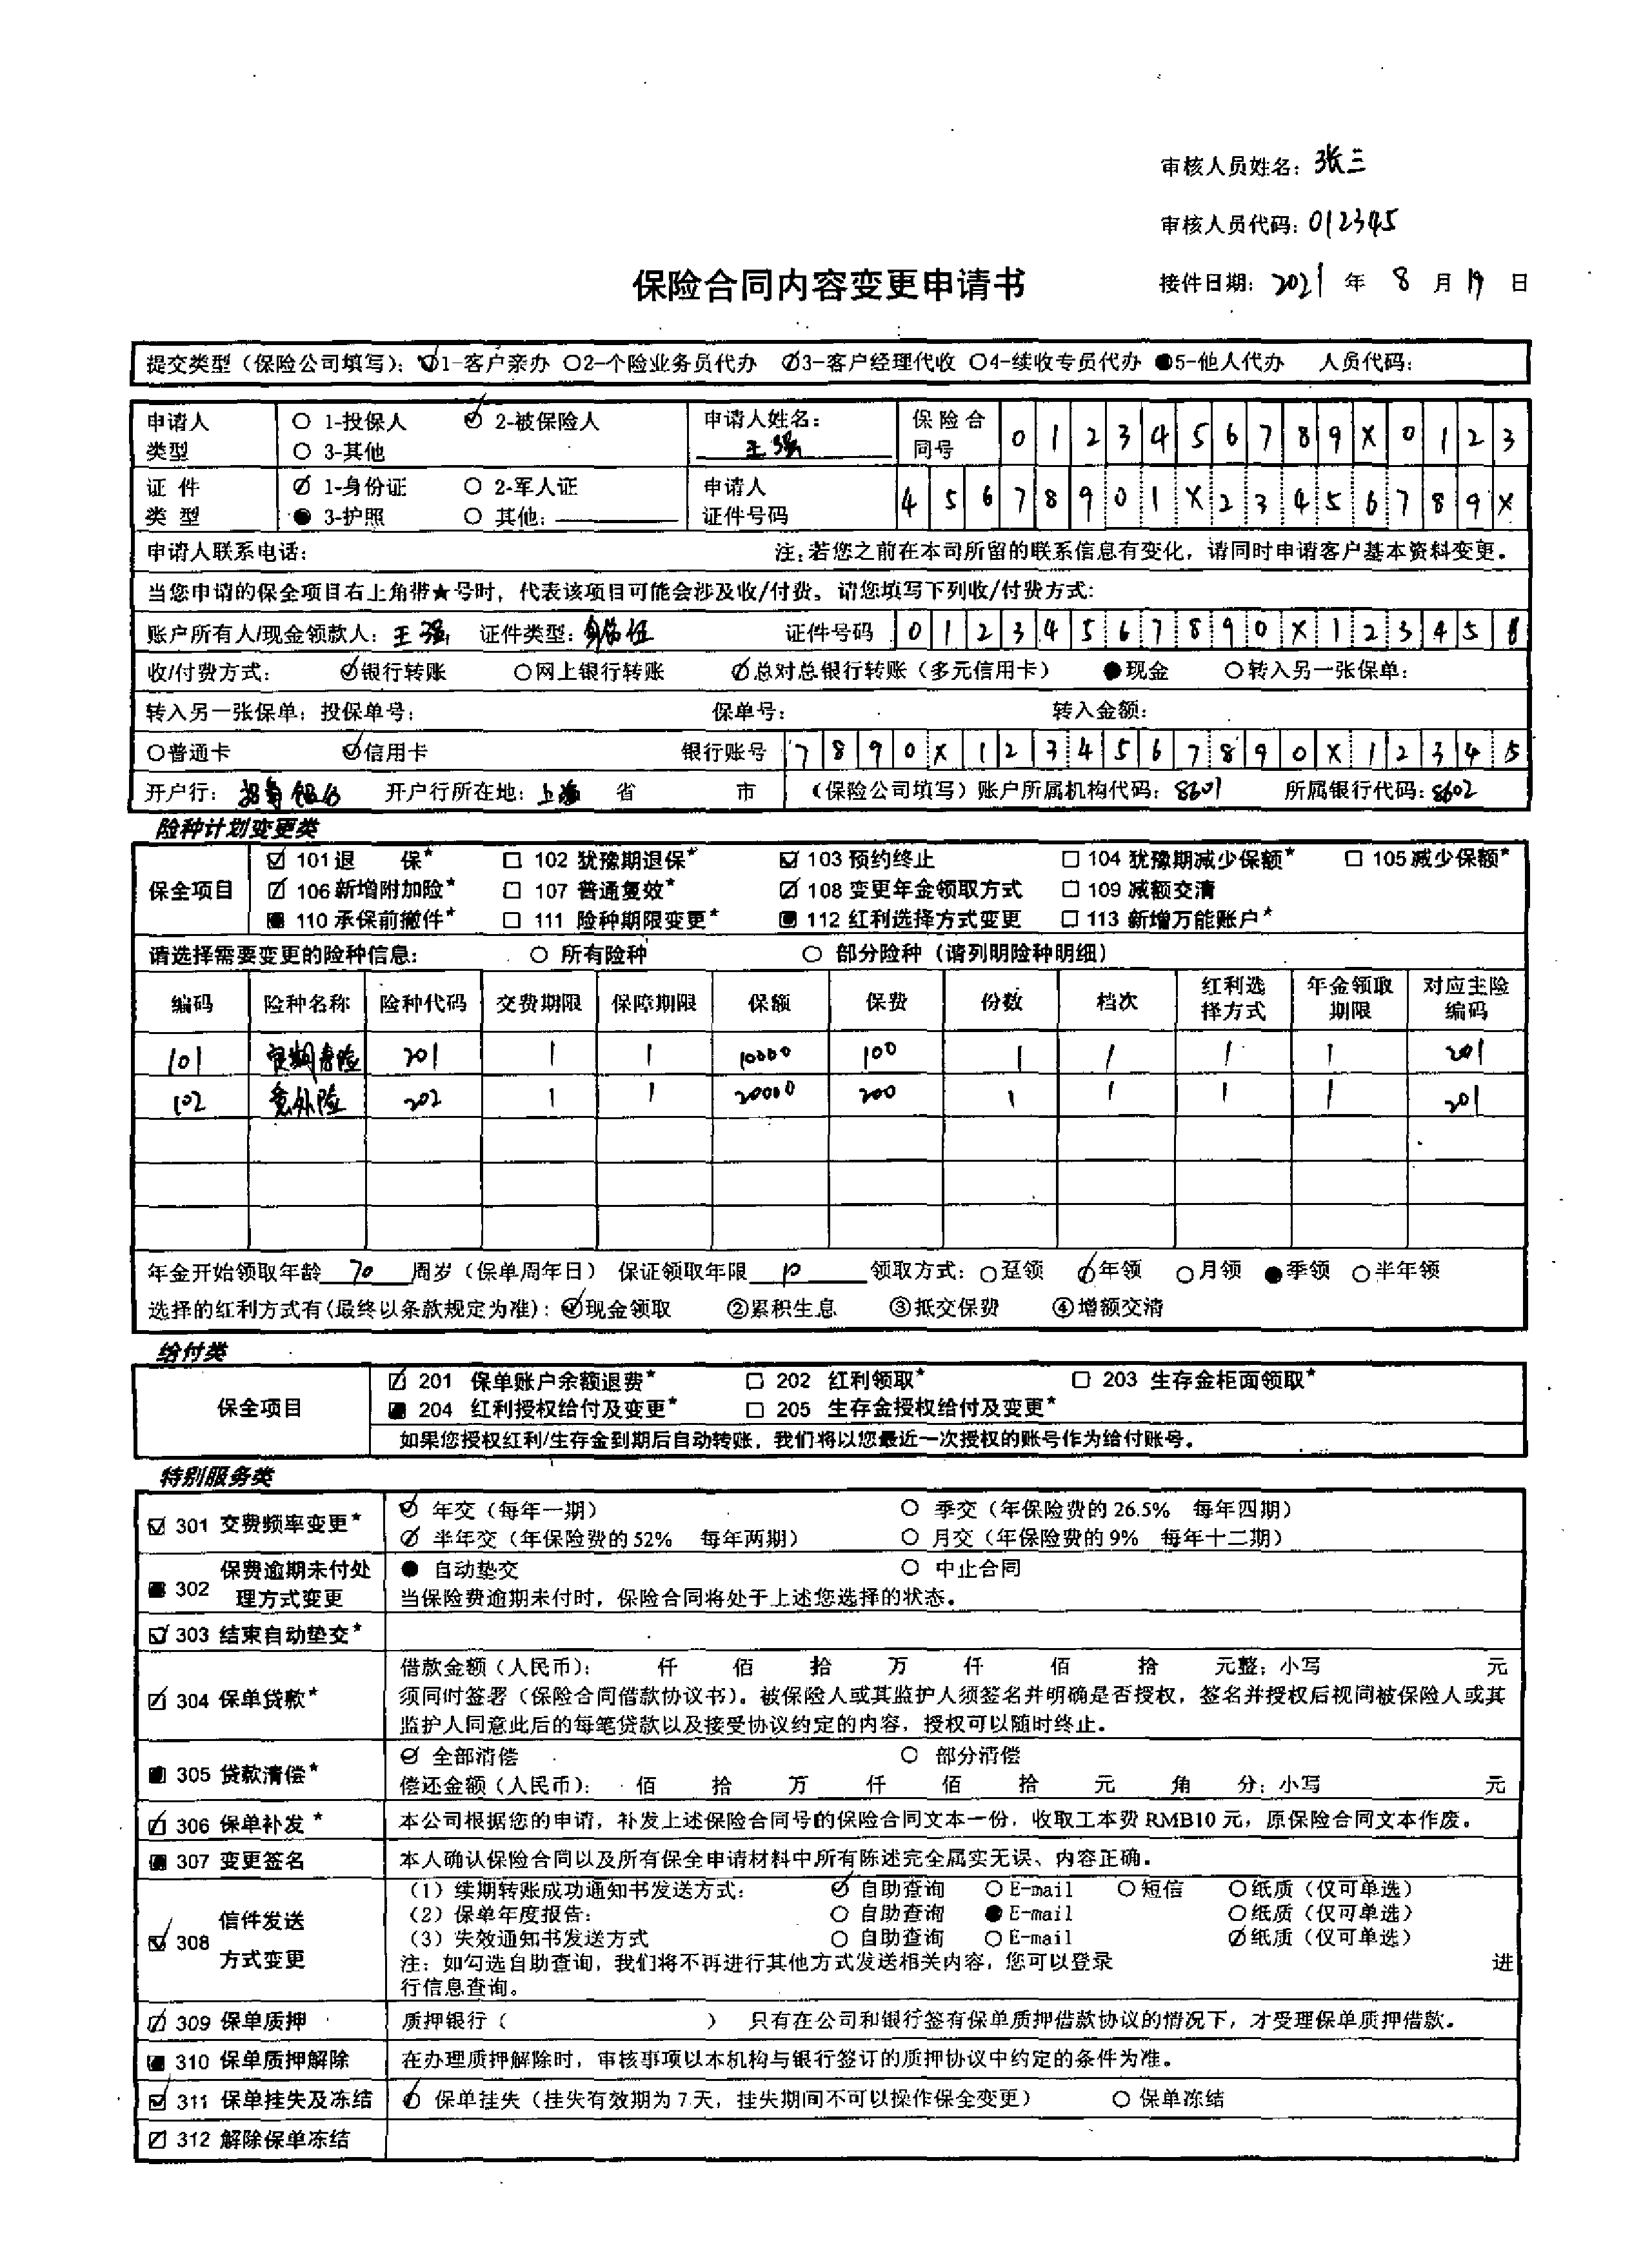 审核人员姓名：张三
审核人员代码：012345
保险合同内容变更申请书
接件日期：2021 年 8 月 19 日
提交类型（保险公司填写）：☑1-客户亲办 ○2-个险业务员代办 ∅3-客户经理代收 ○4-续收专员代办 ●5-他人代办 人员代码：
申请人类型 ○ 1-投保人 ☑ 2-被保险人 ○ 3-其他 申请人姓名：王强 保险合同号 0123456789X0123
证件类型 ∅ 1-身份证 ○ 2-军人证 ● 3-护照 ○ 其他： 申请人证件号码 45678901X23456789X
申请人联系电话： 注：若您之前在本司所留的联系信息有变化，请同时申请客户基本资料变更。
当您申请的保全项目右上角带★号时，代表该项目可能会涉及收/付费，请您填写下列收/付费方式：
账户所有人/现金领款人：王强 证件类型：身份证 证件号码 01234567890X12345
收/付费方式： ☑银行转账 ○网上银行转账 ∅总对总银行转账（多元信用卡） ●现金 ○转入另一张保单：
转入另一张保单：投保单号： 保单号： 转入金额：
○普通卡 ☑信用卡 银行账号 7890X1234567890X12345
开户行：招商银行 开户行所在地：上海 省 市 （保险公司填写）账户所属机构代码：8601 所属银行代码：8602
险种计划变更类
保全项目
☑ 101 退 保* □ 102 犹豫期退保* ☑ 103 预约终止 □ 104 犹豫期减少保额* □ 105 减少保额*
☑ 106 新增附加险* □ 107 普通复效* ☑ 108 变更年金领取方式 □ 109 减额交清
■ 110 承保前撤件* □ 111 险种期限变更* ■ 112 红利选择方式变更 □ 113 新增万能账户*
请选择需要变更的险种信息： ○ 所有险种 ○ 部分险种（请列明险种明细）
编码 险种名称 险种代码 交费期限 保障期限 保额 保费 份数 档次 红利选择方式 年金领取期限 对应主险编码
101 定期寿险 201 1 1 10000 100 1 1 1 1 201
102 意外险 202 1 1 20000 200 1 1 1 1 201
年金开始领取年龄 70 周岁（保单周年日） 保证领取年限 10 领取方式：○趸领 ∅年领 ○月领 ●季领 ○半年领
选择的红利方式有（最终以条款规定为准）：☑现金领取 ②累积生息 ③抵交保费 ④增额交清
给付类
保全项目
☑ 201 保单账户余额退费* □ 202 红利领取* □ 203 生存金柜面领取*
■ 204 红利授权给付及变更* □ 205 生存金授权给付及变更*
如果您授权红利/生存金到期后自动转账，我们将以您最近一次授权的账号作为给付账号。
特别服务类
☑ 301 交费频率变更*
☑ 年交（每年一期） ○ 季交（年保险费的 26.5% 每年四期）
∅ 半年交（年保险费的 52% 每年两期） ○ 月交（年保险费的 9% 每年十二期）
■ 302 保费逾期未付处理方式变更
● 自动垫交 ○ 中止合同
当保险费逾期未付时，保险合同将处于上述您选择的状态。
☑ 303 结束自动垫交*
☑ 304 保单贷款*
借款金额（人民币）： 仟 佰 拾 万 仟 佰 拾 元整；小写 元
须同时签署（保险合同借款协议书）。被保险人或其监护人须签名并明确是否授权，签名并授权后视同被保险人或其
监护人同意此后的每笔贷款以及接受协议约定的内容，授权可以随时终止。
■ 305 贷款清偿*
∅ 全部清偿 ○ 部分清偿
偿还金额（人民币）： 佰 拾 万 仟 佰 拾 元 角 分；小写 元
☑ 306 保单补发 * 本公司根据您的申请，补发上述保险合同号的保险合同文本一份，收取工本费 RMB10 元，原保险合同文本作废。
■ 307 变更签名 本人确认保险合同以及所有保全申请材料中所有陈述完全属实无误、内容正确。
☑ 308 信件发送方式变更
（1）续期转账成功通知书发送方式： ☑ 自助查询 ○ E-mail ○ 短信 ○纸质（仅可单选）
（2）保单年度报告： ○ 自助查询 ● E-mail ○纸质（仅可单选）
（3）失效通知书发送方式 ○ 自助查询 ○ E-mail ∅纸质（仅可单选）
注：如勾选自助查询，我们将不再进行其他方式发送相关内容，您可以登录 进
行信息查询。
☑ 309 保单质押 质押银行（ ） 只有在公司和银行签有保单质押借款协议的情况下，才受理保单质押借款。
■ 310 保单质押解除 在办理质押解除时，审核事项以本机构与银行签订的质押协议中约定的条件为准。
☑ 311 保单挂失及冻结 ∅ 保单挂失（挂失有效期为 7 天，挂失期间不可以操作保全变更） ○ 保单冻结
☑ 312 解除保单冻结